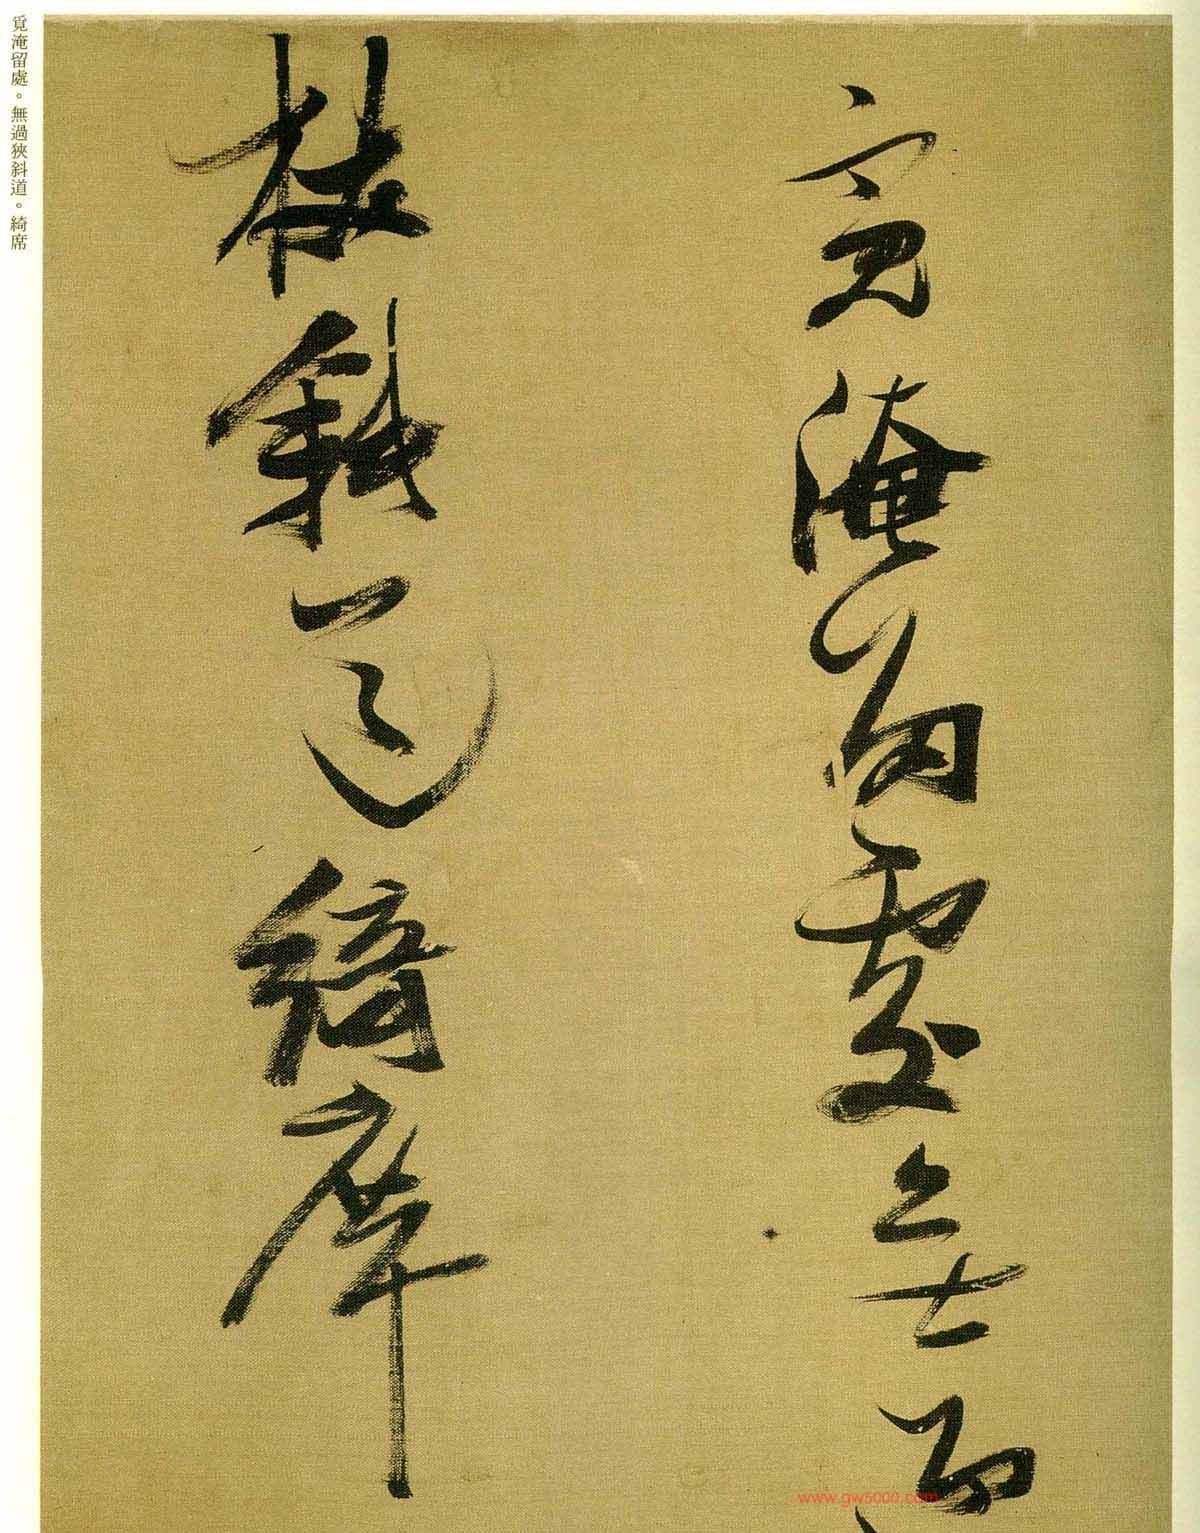 覓淹留處無過
狹斜道綺席
覓淹留處。無過狹斜道。綺席
www.gw5000.com